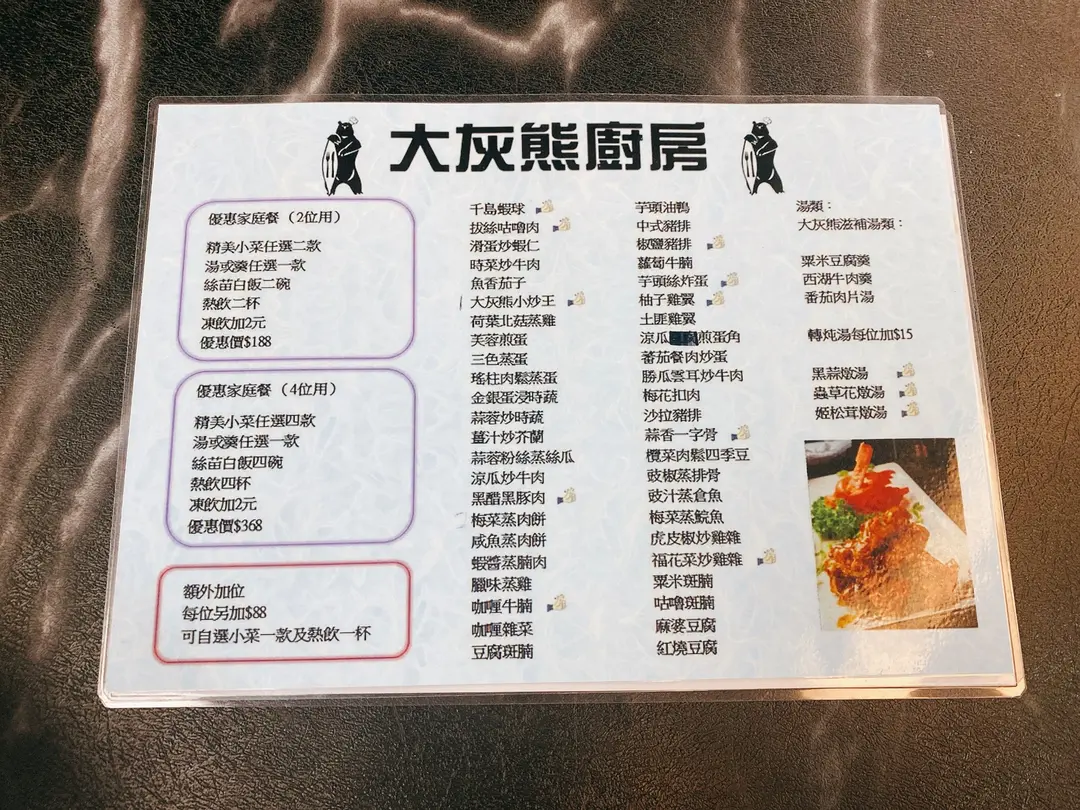 大灰熊廚房
優惠家庭餐（2位用）
精美小菜任選二款
湯或羹任選一款
絲苗白飯二碗
熱飲二杯
凍飲加2元
優惠價$188
優惠家庭餐（4位用）
精美小菜任選四款
湯或羹任選一款
絲苗白飯四碗
熱飲四杯
凍飲加2元
優惠價$368
額外加位
每位另加$88
可自選小菜一款及熱飲一杯
千島蝦球
拔絲咕嚕肉
滑蛋炒蝦仁
時菜炒牛肉
魚香茄子
大灰熊小炒王
荷葉北菇蒸雞
芙蓉煎蛋
三色蒸蛋
瑤柱肉鬆蒸蛋
金銀蛋浸時蔬
蒜蓉炒時蔬
薑汁炒芥蘭
蒜蓉粉絲蒸絲瓜
涼瓜炒牛肉
黑醋黑豚肉
梅菜蒸肉餅
咸魚蒸肉餅
蝦醬蒸腩肉
臘味蒸雞
咖喱牛腩
咖喱雜菜
豆腐斑腩
芋頭油鴨
中式豬排
椒鹽豬排
蘿蔔牛腩
芋頭絲炸蛋
柚子雞翼
土匪雞翼
涼瓜煎蛋角
蕃茄餐肉炒蛋
勝瓜雲耳炒牛肉
梅花扣肉
沙拉豬排
蒜香一字骨
欖菜肉鬆四季豆
豉椒蒸排骨
豉汁蒸倉魚
梅菜蒸鯇魚
虎皮椒炒雞雜
福花菜炒雞雜
粟米斑腩
咕嚕斑腩
麻婆豆腐
紅燒豆腐
湯類：
大灰熊滋補湯類：
粟米豆腐羹
西湖牛肉羹
番茄肉片湯
轉炖湯每位加$15
黑蒜燉湯
蟲草花燉湯
姬松茸燉湯